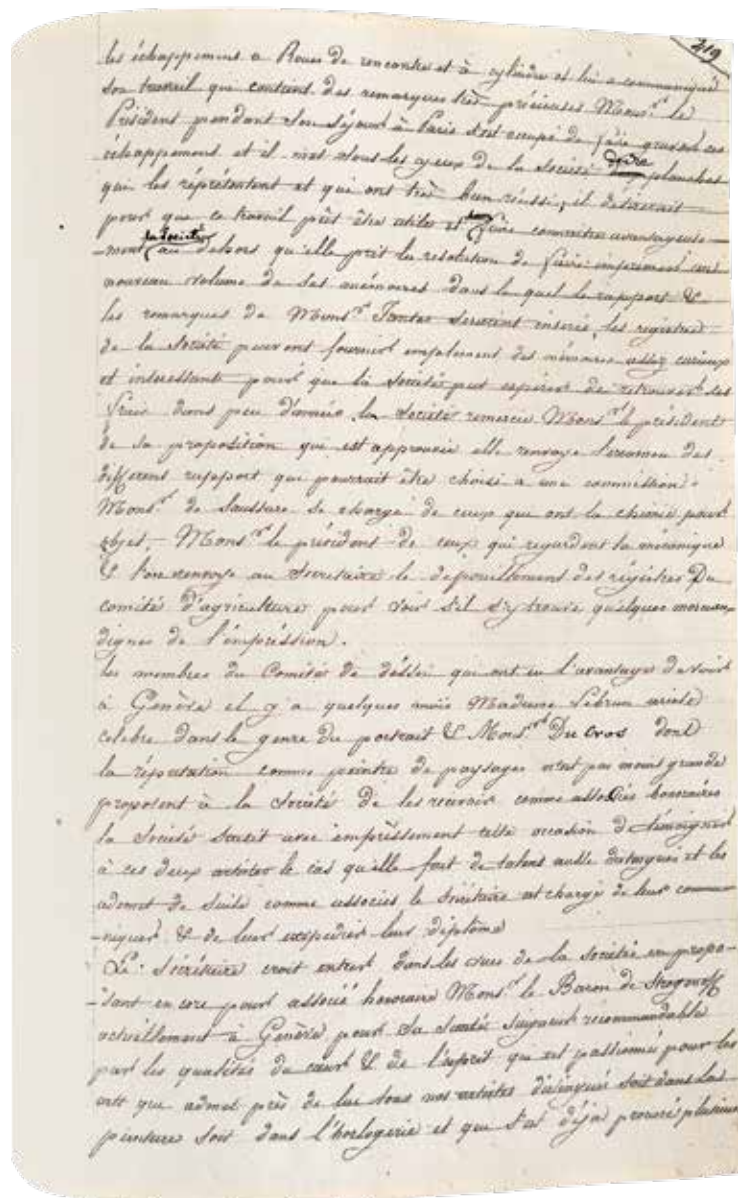 419
les échappement a Roues de rencontre et à cylindre et lui a communiqué
son travail que contient des remarques très précieuses Mons.r le
Président pendant son séjour à Paris s'est occupé de faire graver ces
échappement et il met sous les yeux de la Société deux planches
qui les réprésentent et qui ont très bien réussi, il desirerait
pour que ce travail pût être utile et faire connoitre avantageuse-
-ment la Société au dehors qu'elle prit la resolution de faire imprimer un
nouveau volume de ses mémoires dans le quel le rapport &
les remarques de Mons.r Tavan seraient inseré, les registres
de la Société peuvent fournir emplement des mémoires assez curieux
et interessants pour que la Société put espérer de retrouver ses
frais dans peu d'année, la Société remercie Mons.r le président
de sa proposition qui est approuvée elle renvoye l'examen des
différent rapport que pourrait être choisi a une commission.
Mons.r de Saussure se charge de ceux que ont la chimie pour
objet, Mons.r le président de ceux qui regardent la mécanique
& l'on renvoye au Secretaire le depouillement des régistres Du
comité d'agriculture pour voir s'il s'y trouve quelques morceaux
dignes de l'impréssion.
les membres du Comité de dessin qui ont eu l'avantage de voir
à Genève il y a quelques mois Madame Lebrun artiste
celebre dans le genre du portrait & Mons.r Du Cros dont
la réputation comme peintre de paysages n'est pas moins grande
proposent à la Société de les recevoir comme associés honoraires
la Société saisit avec empréssement cette occasion de témoigner
à ces deux artistes le cas qu'elle fait de talens aussi distingues et les
admet de suite comme associés le Secrétaire est chargé de leur commu-
-niquer & de leur expédier leur diplôme
Le Sécrétaire croit entrer dans les vues de la société en propo-
-sant encore pour associé honoraire Mons.r le Baron de Strogonoff
actuéllement à Genève pour sa santé Seigneur recommandable
par les qualités du cœur & de l'esprit qui est passionné pour les
arts que admet près de lui tous nos artistes distingués soit dans la
peinture soit dans l'horlogerie et que s'est déja procuré plusieurs